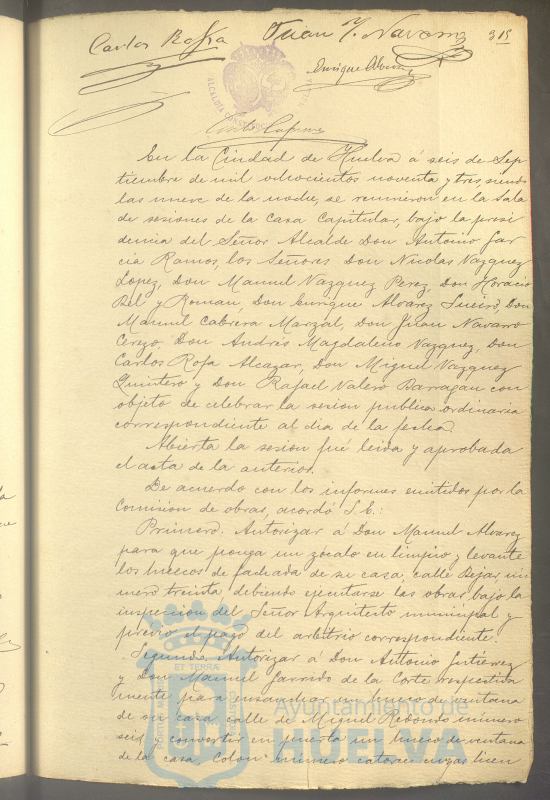 Carlos Rofa Juan M. Navarro 315
Enrique Alvarez
En la Ciudad de Huelva á seis de Sep
tiembre de mil ochocientos noventa y tres, siendo
las nueve de la noche, se reunieron en la Sala
de sesiones de la casa capitular, bajo la presi
dencia del Señor Alcalde Don Antonio Gar
cia Ramos, los Señores Don Nicolas Vazquez
Lopez, Don Manuel Vazquez Perez, Don Horacio
Bel y Roman, Don Enrique Alvarez Sueiro, Don
Manuel Cabrera Marzal, Don Juan Navarro
Cerezo, Don Andrés Magdaleno Vazquez, Don
Carlos Rofa Alcazar, Don Miguel Vazquez
Quintero y Don Rafael Valero Barragan con
objeto de celebrar la sesion publica ordinaria
correspondiente al dia de la fecha.
Abierta la sesion fué leida y aprobada
el acta de la anterior.
De acuerdo con los informes emitidos por la
Comision de obras, acordó S.E.:
Primero. Autorizar á Don Manuel Alvarez
para que ponga un zócalo en limpio y levante
los huecos de fachada de su casa, calle Bejar, nú
mero treinta, debiendo ejecutarse las obras bajo la
inspeccion del Señor Arquitecto municipal y
previo el pago del arbitrio correspondiente.
Segundo. Autorizar á Don Antonio Gutierrez
y Don Manuel Garrido de la Corte respectiva
mente para ensanchar un hueco de ventana
de su casa calle de Miguel Redondo número
seis y convertir en puerta un hueco de ventana
de la casa Colon número catorce cuyas licen
Ayuntamiento de
HUELVA